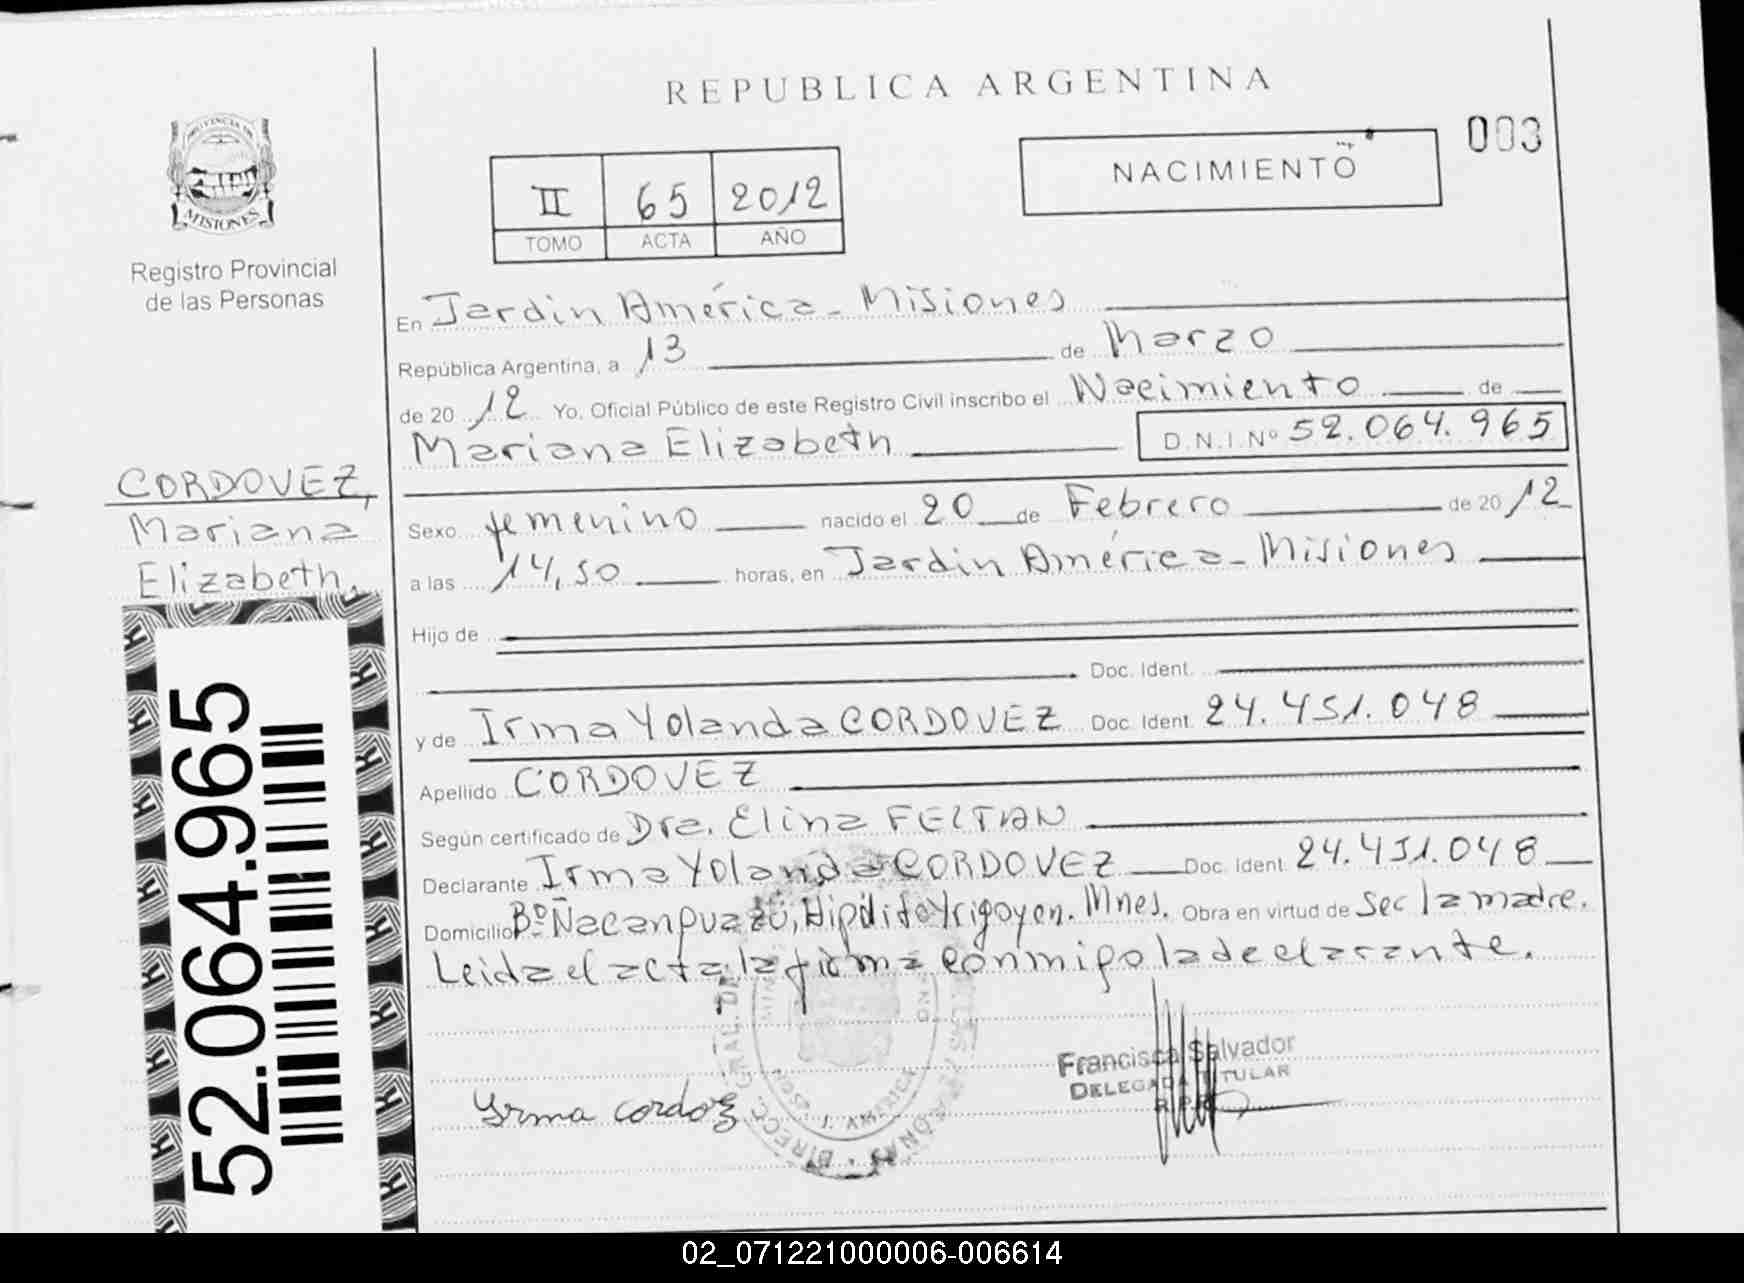 REPUBLICA ARGENTINA
003
NACIMIENTO
II 65 2012
TOMO ACTA AÑO
PROVINCIA DE
MISIONES
Registro Provincial
de las Personas
CORDOVEZ,
Mariana
Elizabeth.
52.064.965
En Jardin América - Misiones
República Argentina, a 13 de Marzo
de 20 12 Yo, Oficial Público de este Registro Civil inscribo el Nacimiento de
Mariana Elizabeth D.N.I.Nº 52.064.965
Sexo femenino nacido el 20 de Febrero de 20 12
a las 14,50 horas, en Jardin América - Misiones
Hijo de
Doc. Ident.
y de Irma Yolanda CORDOVEZ Doc. Ident. 24.451.048
Apellido CORDOVEZ
Según certificado de Dra. Elina FELTAN
Declarante Irma Yolanda CORDOVEZ Doc. Ident. 24.451.048
Domicilio Bº Ñacanguazú, Hipólito Yrigoyen. Mnes. Obra en virtud de Ser la madre.
Leida el acta, la firma conmigo la declarante.
Irma cordoz
Francisca Salvador
DELEGADA TITULAR
R.P.P.
J. AMERICA
02_071221000006-006614